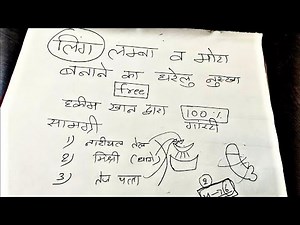 लिंग लम्बा व मोटा
बनाने का घरेलु नुस्खा
free
हकीम खान द्वारा 100%
सामग्री गारंटी
1) नारीयल तेल
2) मिश्री (धागे)
3) तेज पत्ता